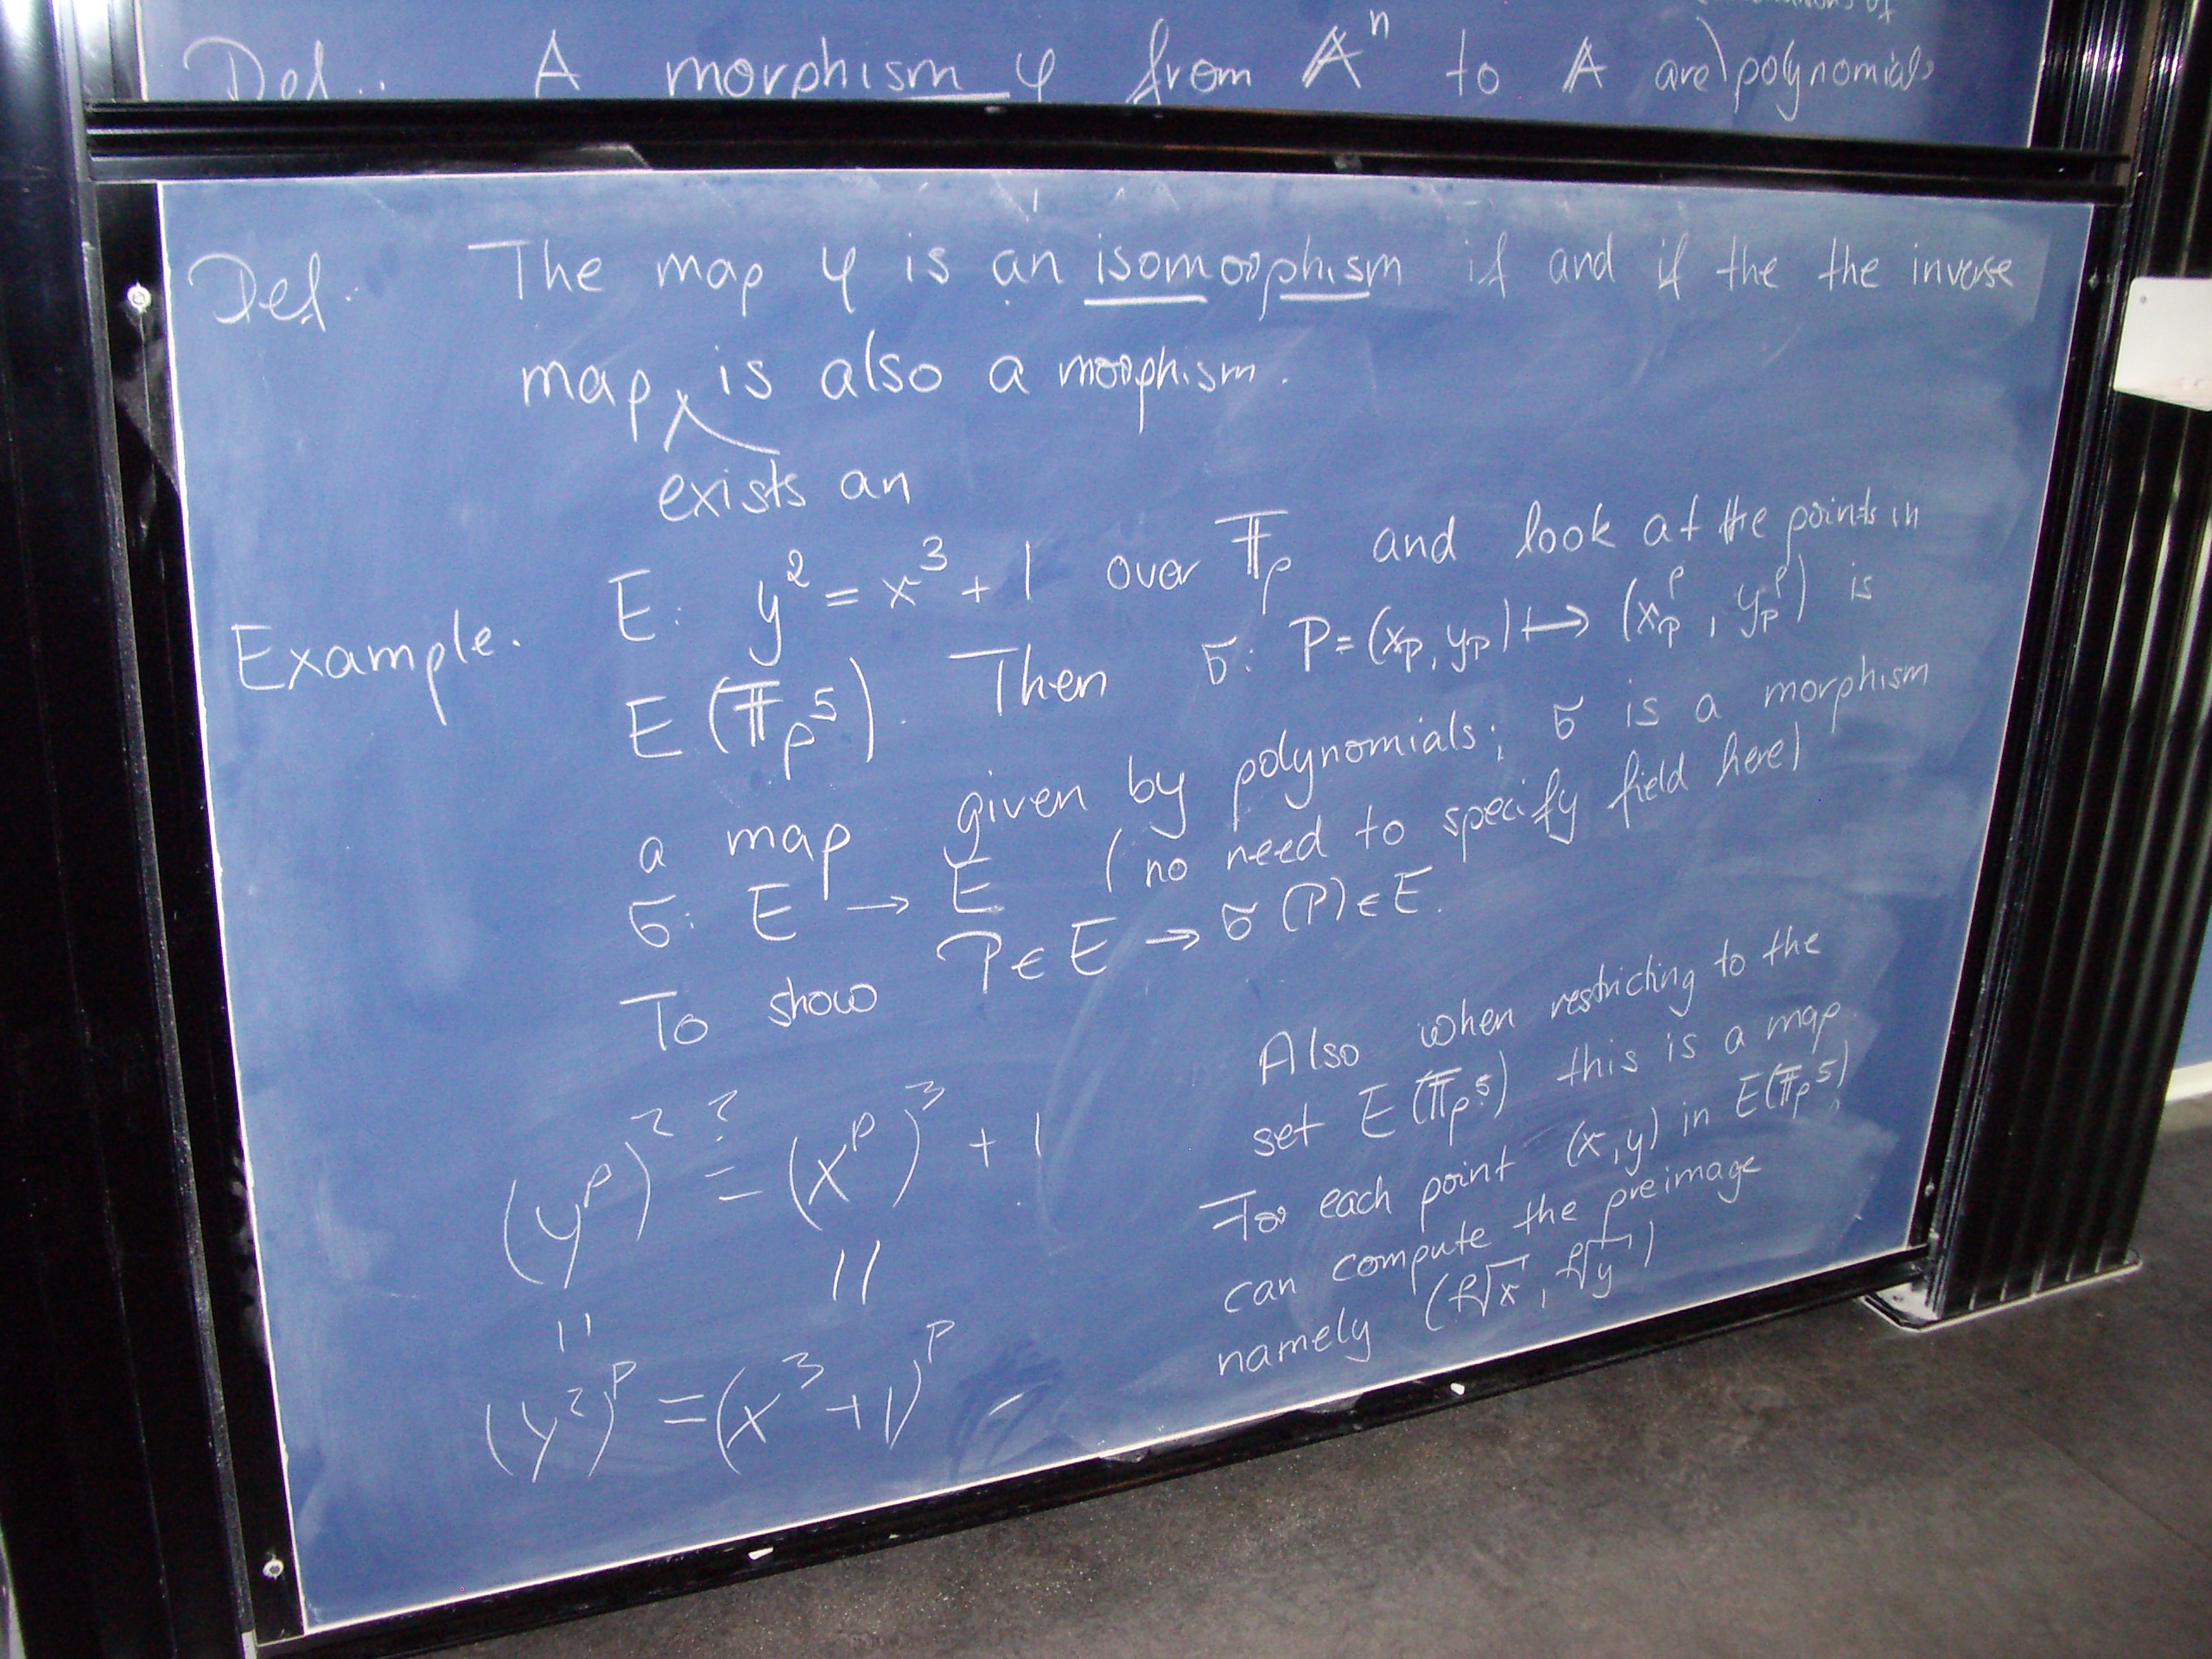 Def.. A morphism φ from 𝔸ⁿ to 𝔸 are) polynomials
Def. The map φ is an isomorphism if and if the the inverse
map is also a morphism.
exists an
Example. E: y² = x³ + 1 over 𝔽_p and look at the points in
E(𝔽_p⁵). Then σ: P=(x_P, y_P) ↦ (x_P^p, y_P^p) is
a map given by polynomials; σ is a morphism
σ: E → E (no need to specify field here)
To show P∈E → σ(P)∈E.
(y^p)² ≟ (x^p)³ + 1
|| ||
(y²)^p = (x³+1)^p -
Also when restricting to the
set E(𝔽_p⁵) this is a map
For each point (x,y) in E(𝔽_p⁵)
can compute the preimage
namely (ᵖ√x, ᵖ√y)